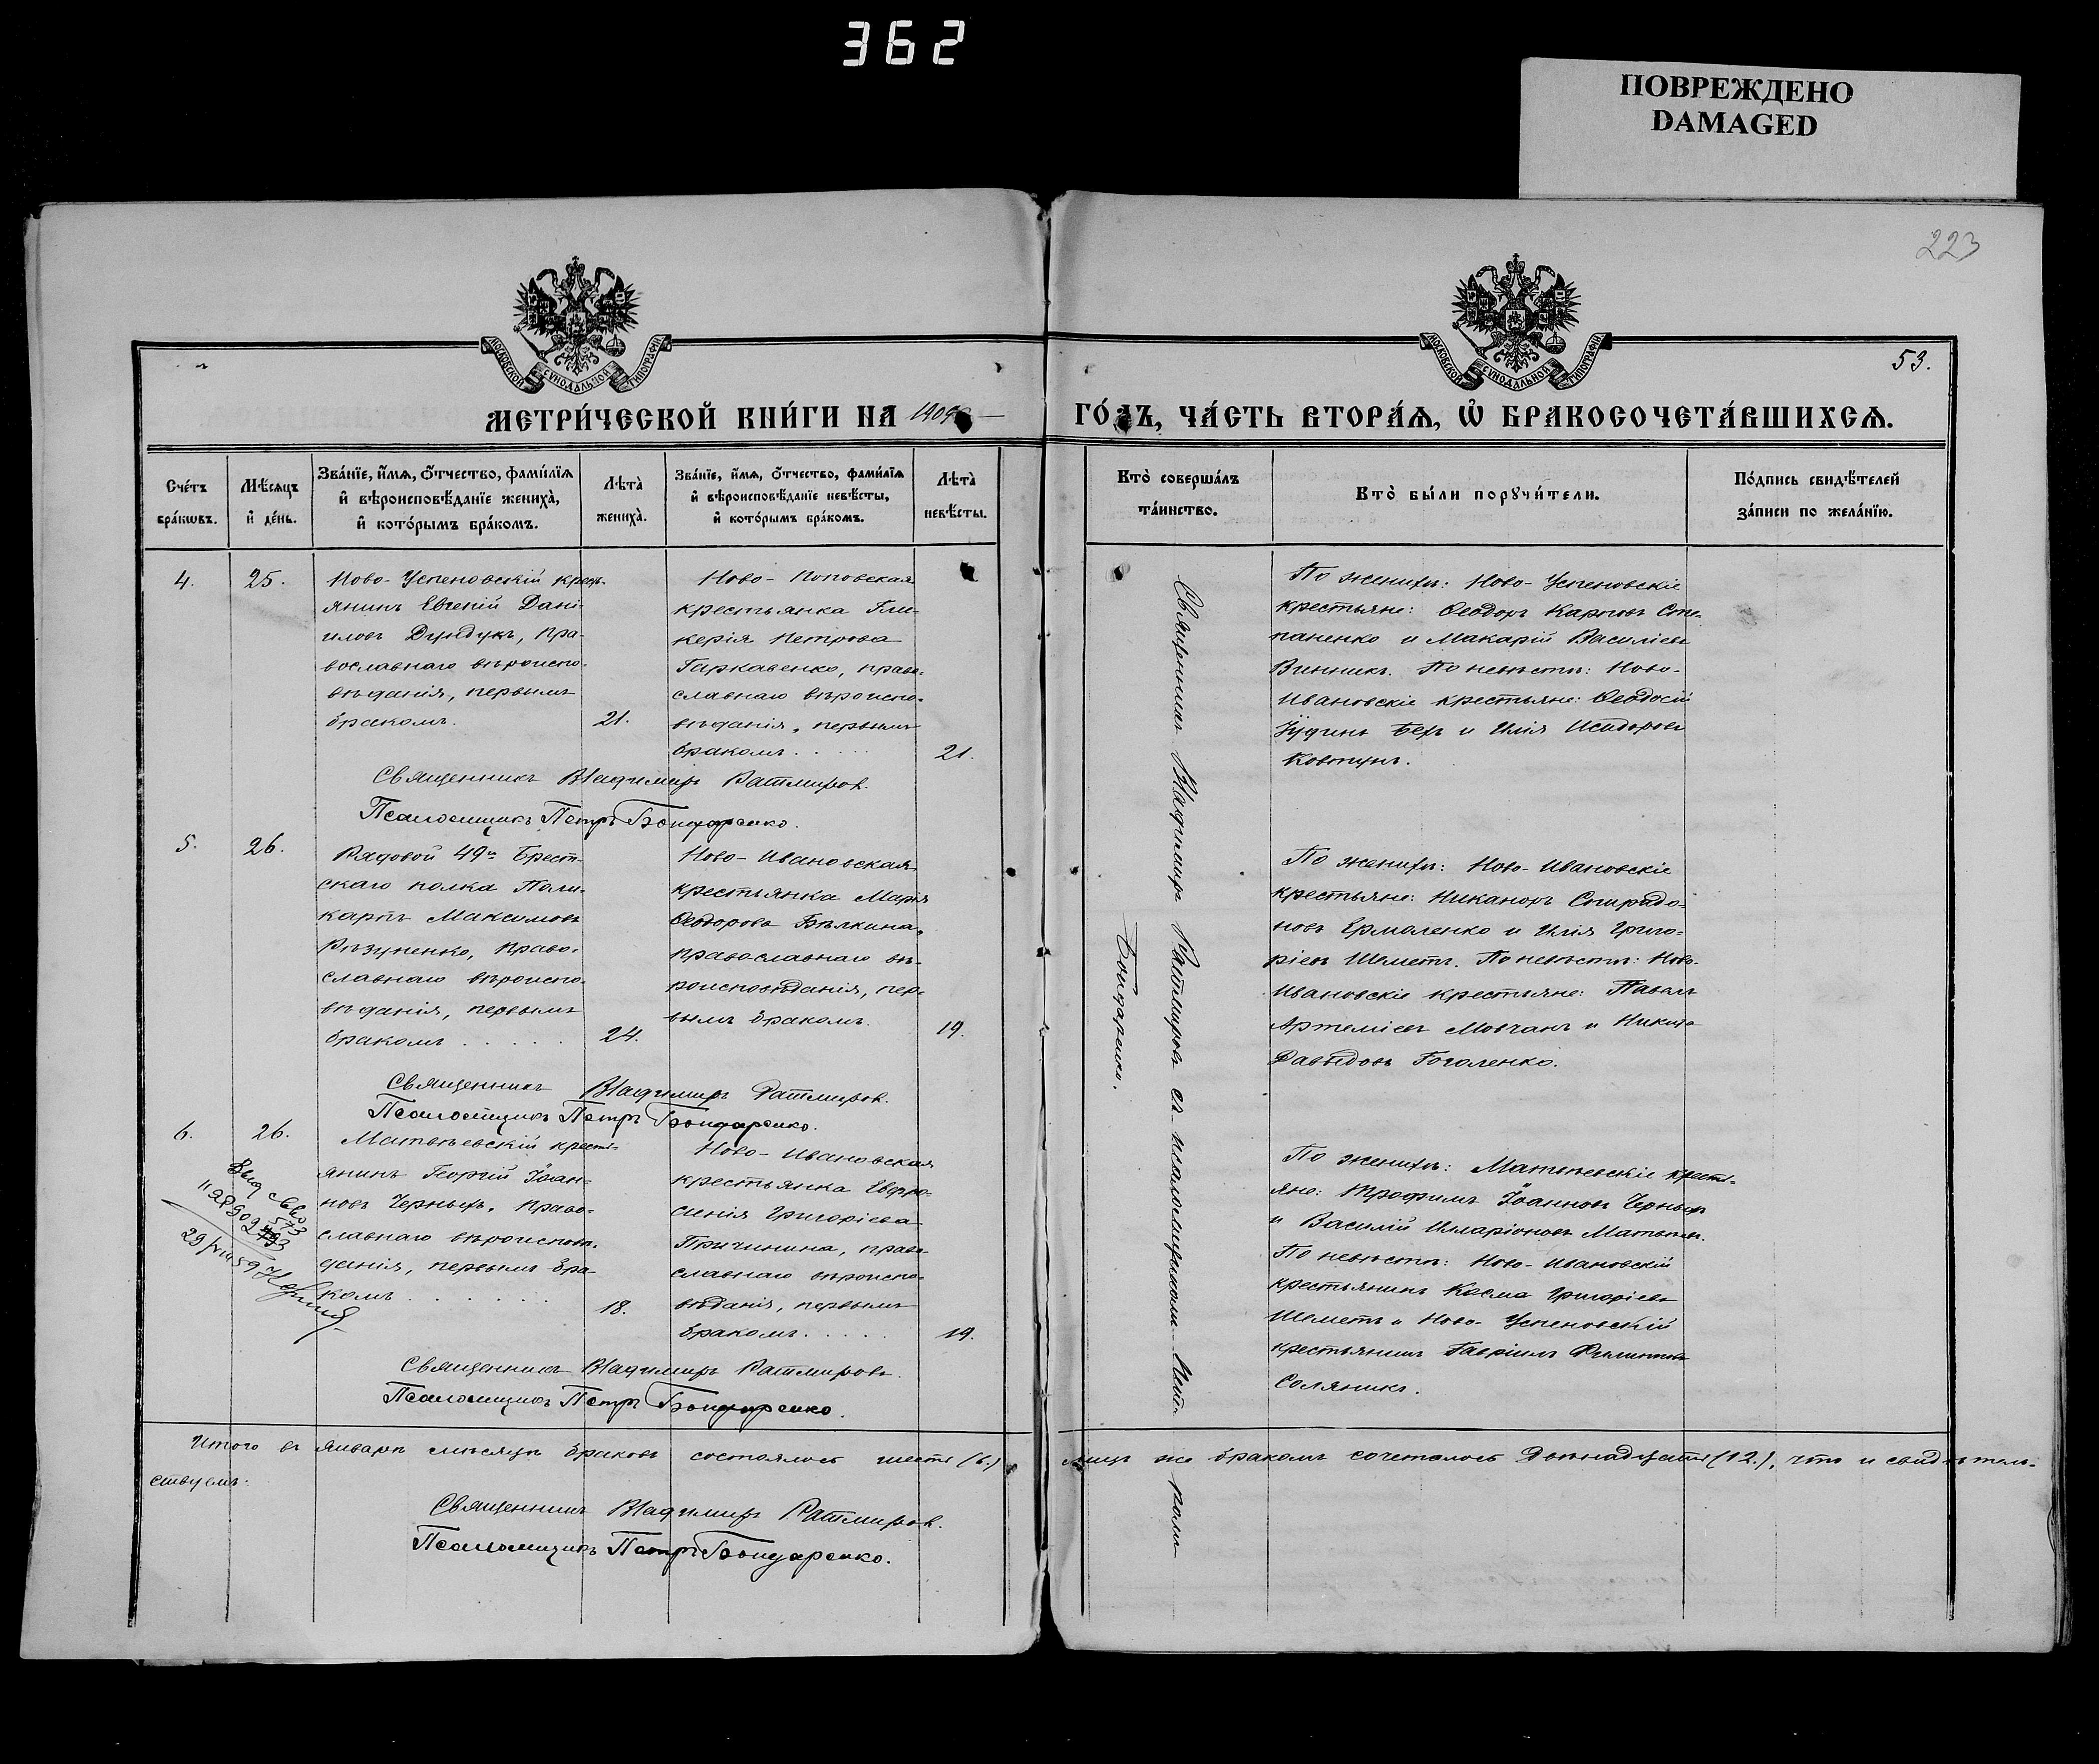 362
ПОВРЕЖДЕНО
DAMAGED
223
53.
МОСКОВСКОЙ СѴНОДАЛЬНОЙ ТИПОГРАФІИ
МОСКОВСКОЙ СѴНОДАЛЬНОЙ ТИПОГРАФІИ
МЕТРИ́ЧЕСКОЙ КНИ́ГИ НА
ГО́ДЪ, ЧА́СТЬ ВТОРА́Ѧ, Ѡ҆ БРАКОСОЧЕТА́ВШИХСѦ.
Сче́тъ
бра́кѡвъ.
Мѣ́сѧцъ
и҆ де́нь.
Зва́нїе, и҆́мѧ, ѻ҆́тчество, фамѝлїѧ
и҆ вѣроисповѣ́данїе жениха̀,
и҆ кото́рымъ бра́комъ.
Лѣта̀
жениха̀.
Зва́нїе, и҆́мѧ, ѻ҆́тчество, фамѝлїѧ
и҆ вѣроисповѣ́данїе невѣ́сты,
и҆ кото́рымъ бра́комъ.
Лѣта̀
невѣ́сты.
Кто̀ соверша́лъ
та́инство.
Кто̀ бы́ли порꙋчи́тели.
По́дпись свидѣ́телей
за́писи по жела́нїю.
4.
25.
Ново-Успеновскій крест-
янинъ Евгеній Дані-
иловъ Дундукъ, пра-
вославнаго вѣроиспо-
вѣданія, первымъ
бракомъ.
21.
Ново-Поповская
крестьянка Гли-
керія Петрова
Гаркавенко, право-
славнаго вѣроиспо-
вѣданія, первымъ
бракомъ . . . .
21.
По женихѣ: Ново-Успеновскіе
крестьяне: Ѳеодоръ Карповъ Сте-
паненко и Макарій Василіевъ
Винникъ. По невѣстѣ: Ново-
Ивановскіе крестьяне: Ѳеодосій
Іудинъ Бехъ и Илія Исидоровъ
Ковтунъ.
Священникъ Владимиръ Ратмировъ.
Псаломщикъ Петръ Бондаренко.
5.
26.
Рядовой 49го Брест-
скаго полка Поли-
карпъ Максимовъ
Рѣзуненко, право-
славнаго вѣроиспо-
вѣданія, первымъ
бракомъ . . . . .
24.
Ново-Ивановская
крестьянка Марія
Ѳеодорова Бѣлкина,
православнаго вѣ-
роисповѣданія, пер-
вымъ бракомъ.
19.
По женихѣ: Ново-Ивановскіе
крестьяне: Никаноръ Спиридо-
новъ Ермоленко и Илія Григо-
ріевъ Шеметъ. По невѣстѣ: Ново-
Ивановскіе крестьяне: Павелъ
Артеміевъ Мовчанъ и Никита
Давыдовъ Гоголенко.
Священникъ Владимиръ Ратмировъ.
Псаломщикъ Петръ Бондаренко.
6.
26.
Матвѣевскій кресть-
янинъ Георгій Іоан-
новъ Черныхъ, право-
славнаго вѣроисповѣ-
данія, первымъ бра-
комъ . . . . . . .
18.
Ново-Ивановская
крестьянка Евфро-
синія Григоріева
Причинина, право-
славнаго вѣроиспо-
вѣданія, первымъ
бракомъ . . . . .
19.
По женихѣ: Матвѣевскіе кресть-
яне: Трофимъ Іоанновъ Черныхъ
и Василій Иларіоновъ Матвѣев.
По невѣстѣ: Ново-Ивановскій
крестьянинъ Косма Григоріевъ
Шеметъ и Ново-Успеновскій
крестьянинъ Гавріилъ
Соляникъ.
Священникъ Владимиръ Ратмировъ.
Псаломщикъ Петръ Бондаренко.
Священникъ Владимиръ Ратмировъ съ псаломщикомъ
Бондаренко.
Итого въ январѣ мѣсяцѣ браковъ состоялось шесть (6.) лицъ же бракомъ сочеталось двѣнадцать (12.), что и свидѣтель-
ствуемъ:
Священникъ Владимиръ Ратмировъ.
Псаломщикъ Петръ Бондаренко.